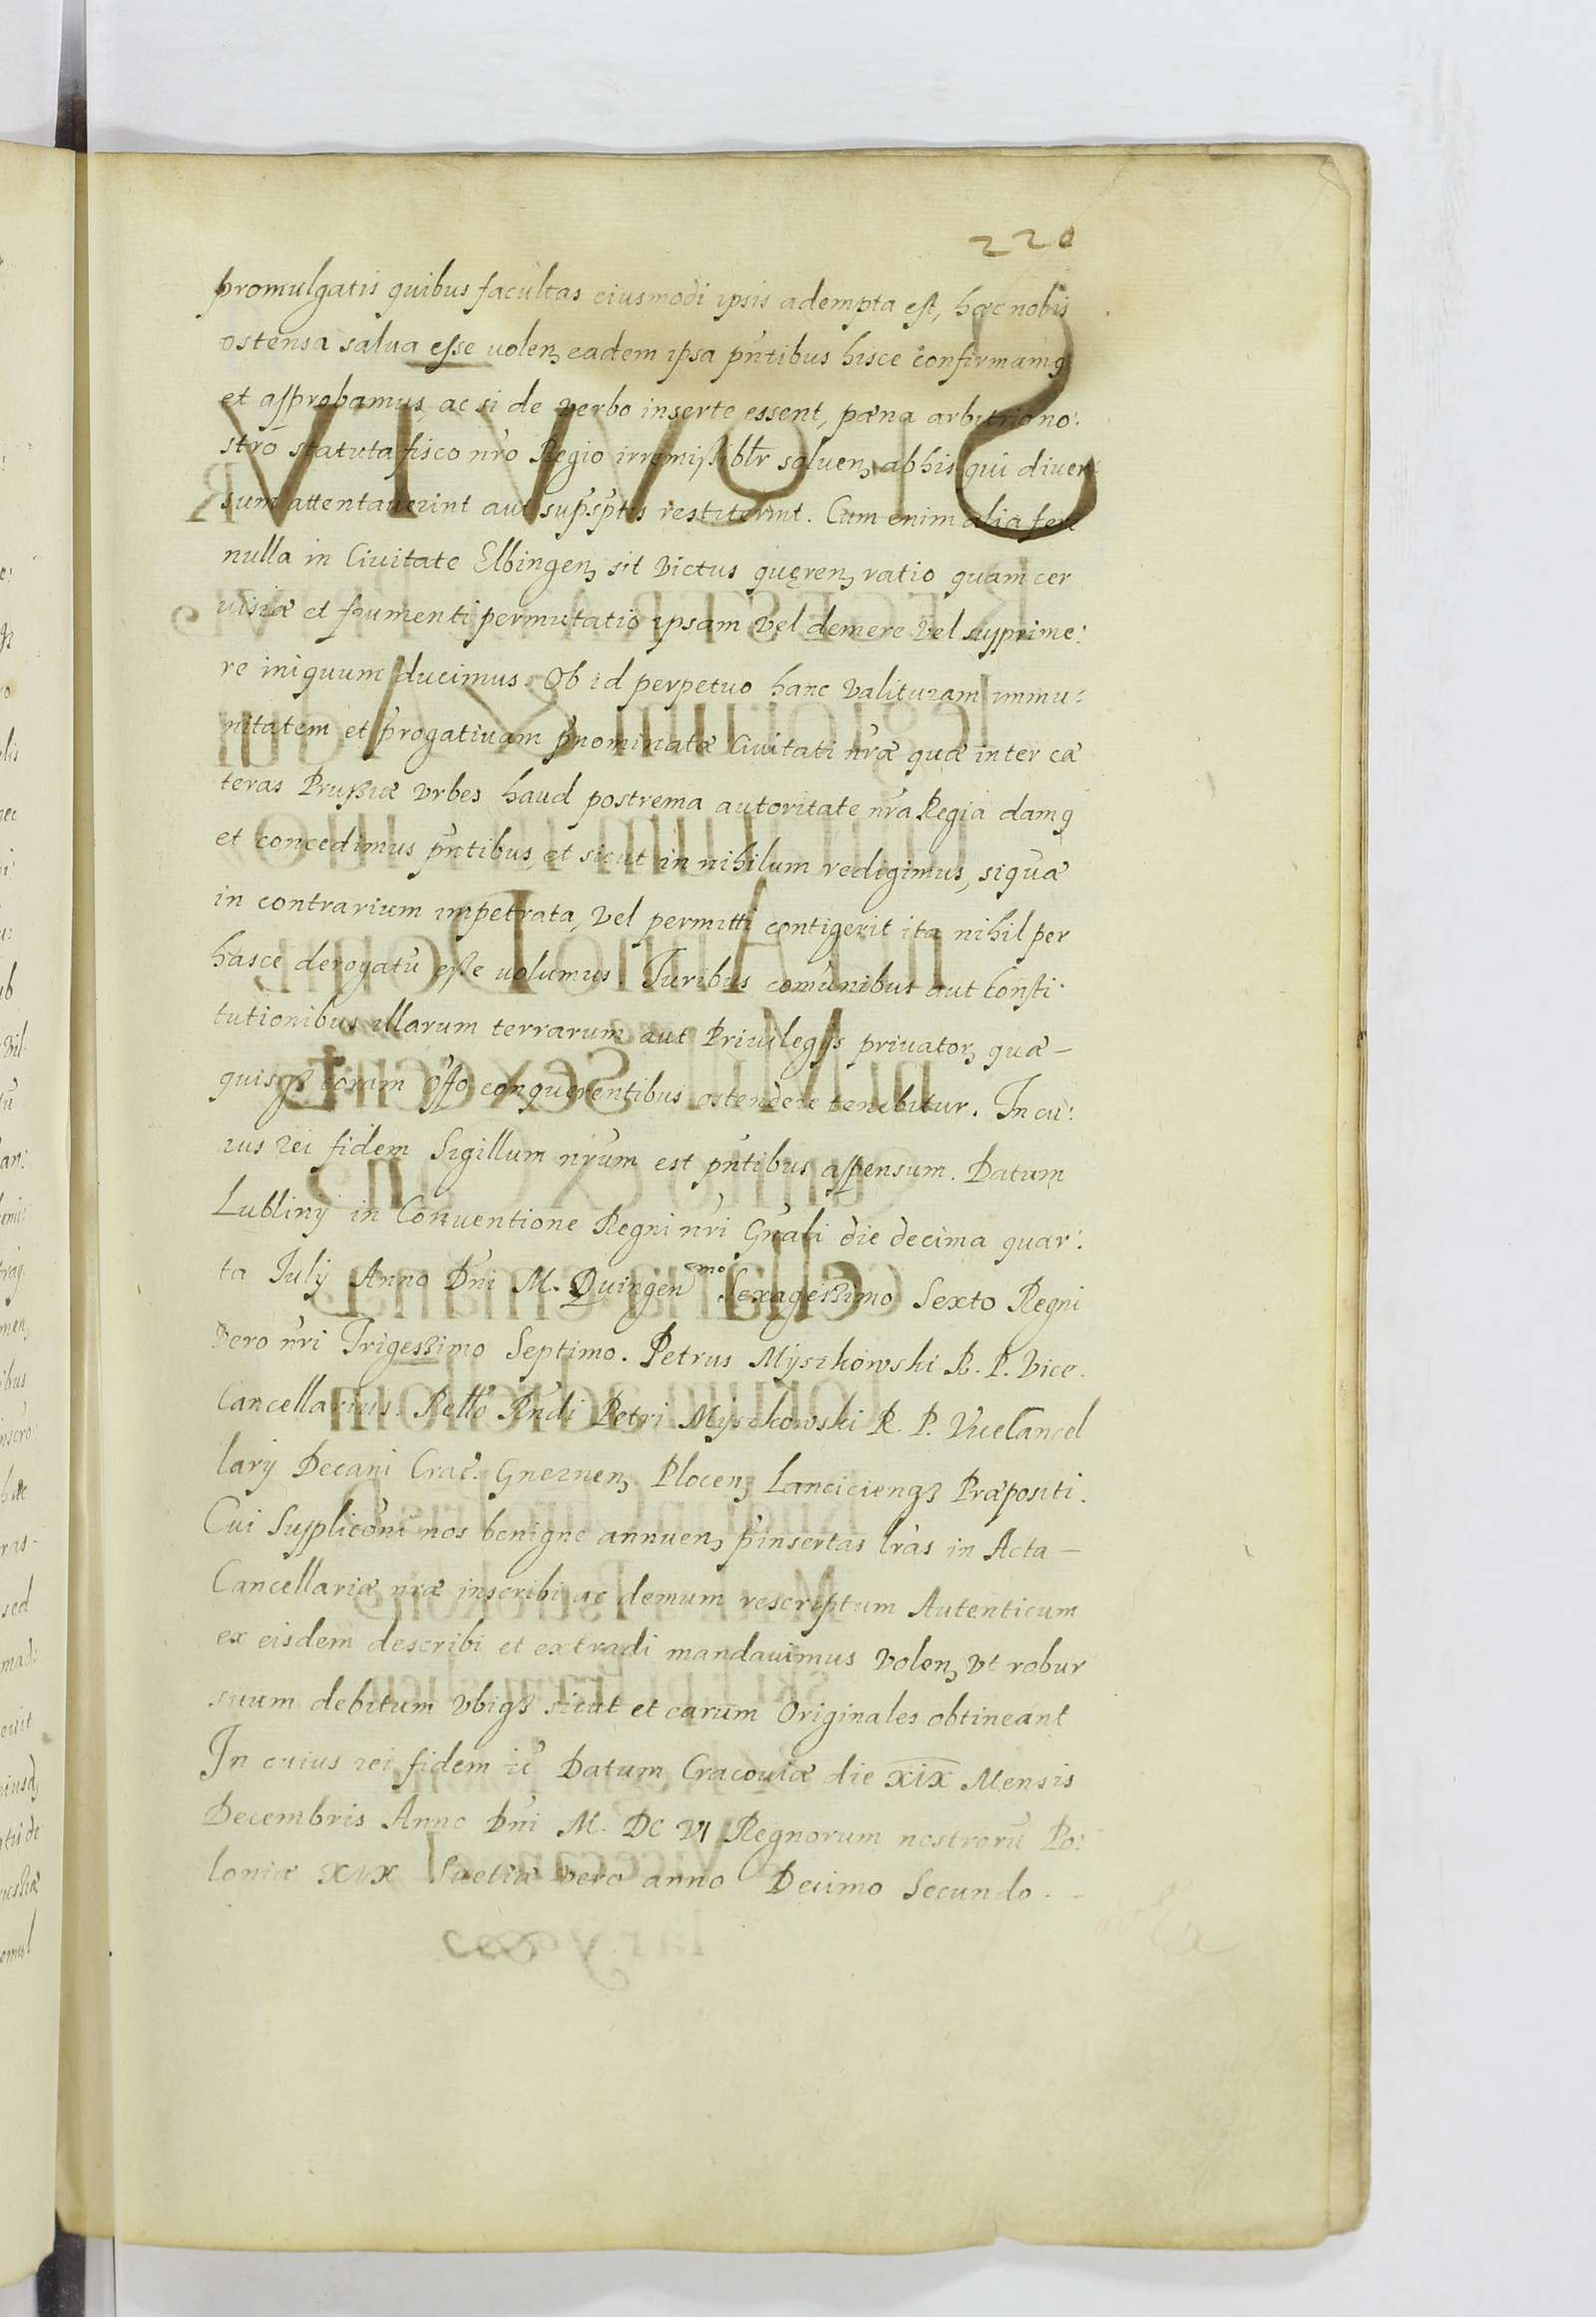 220
promulgatis quibus facultas eiusmodi ipsis adempta est, hæc nobis
ostensa salua esse uolenꝫ eadem ipsa pñtibus hisce confirmamꝯ
et approbamus ac si de verbo inserte essent, pæna arbitrio no:
stro statuta fisco nr̃o Regio irremissiblr soluenꝫ ab his qui diuer:
sum attentauerint aut supsptis restiterint. Cum enim alia fere
nulla in Ciuitate Elbingenꝫ sit victus quęrenꝫ ratio quam cer
uisiæ et frumenti permutatio ipsam vel demere vel supprime:
re iniquum ducimus. Ob id perpetuo hanc valituram immu:
nitatem et progatiuam pnominatæ Ciuitati nr̃æ quæ inter cæ
teras Prussiæ vrbes haud postrema autoritate nr̃a Regia damꝯ
et concedimus pñtibus, et sicut in nihilum redigimus, siquæ
in contrarium impetrata, vel permitti contigerit ita nihil per
hasce derogatũ esse uolumus. Iuribus comũnibus aut Consti:
tutionibus illarum terrarum aut Priuilegijs priuatorꝫ quæ –
quisqꝫ coram offo conquerentibus ostendere tenebitur. In cu:
ius rei fidem Sigillum nrũm est pñtibus appensum. Datum
Lublinij in Conuentione Regni nr̃i Gñali die decima quar:
ta Iulij Anno Dñi M. Quingen<sup>mo</sup> Sexagessimo Sexto Regni
vero nr̃i Trigessimo Septimo. Petrus Myszkowski R. P. Vice.
Cancellarius. Rell̃o Rñdi Petri Myszkowski R. P. Vicecancel
larij Decani Crac̃. Gneznenꝫ Plocenꝫ Lanciciengꝫ Præpositi.
Cui Supplicõni nos benigne annuenꝫ pinsertas lr̃as in Acta –
Cancellariæ nr̃æ inscribi ac demum rescriptum Autenticum
ex eisdem describi et extradi mandauimus volenꝫ vt robur
suum debitum vbiqꝫ sicut et earum Originales obtineant
In cuius rei fidem ic̃ Datum Cracouiæ die XIX Mensis
Decembris Anno Dñi M. DC VI Regnorum nostrorũ Po:
loniæ XIX Suetiæ vero anno Decimo Secundo.